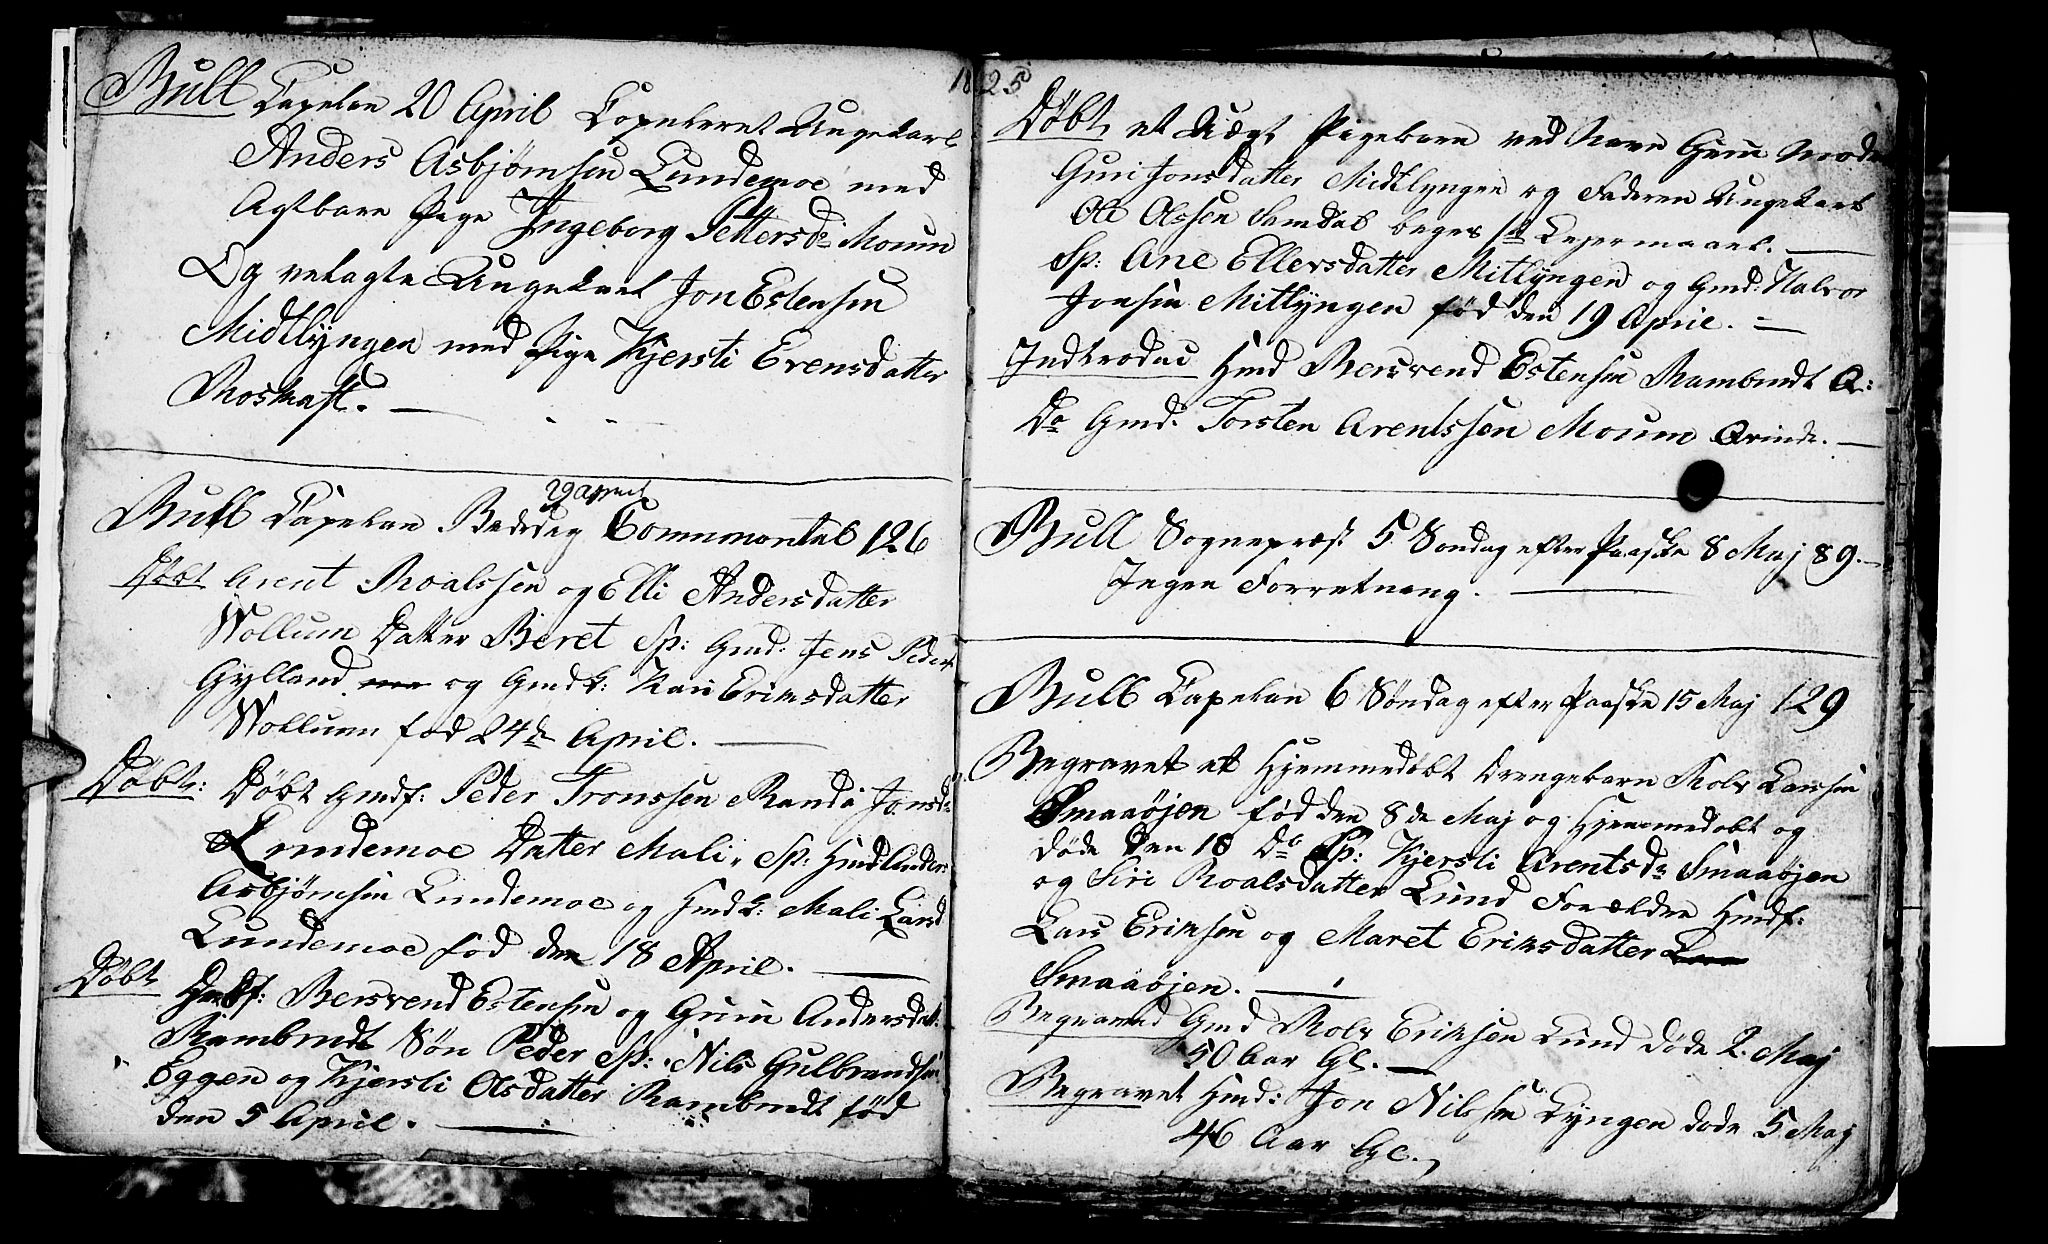 1825
Bull Capelan 20 April Copuleret Ungekarl
Anders Asbjørnsen Lundemoe med
Agtbare Pige Ingeborg Pettersd: Moum
Og velagte Ungekarl Jon Estensen
Midtlyngen med Pige Kjersti Evensdatter
Roskaft. —
29 April
Bull Capelan Bededag Commontal 126
Døbt Arent Roalssen og Elli Andersdatter
Wollum Datter Beret Sp: Gmd: Jens Peders
Gylland og Gmdk: Kari Eriksdatter
Wollum fød 24de April. —
Døbt: Døbt Gmdf: Peder Tronssen Randi Jonsd:
Lundemoe Datter Mali, Sp: Hmd Anders
Asbjørnsen Lundemoe og Hmdk: Mali Larsd
Lundemoe fød den 18 April. —
Døbt Hmdf: Bersvend Estensen og Guru Andersdat:
Rambredt Søn Peder Sp: Nils Gulbrandsen
Eggen og Kjersti Olsdatter Rambredt fød
den 5 April. —
Døbt et Uægt Pigebarn ved Navn Guru Moder
Guri Jonsdatter Midtlyngen og Faderen Ungekarl
Ole Olssen Samdal beges 1st Lejermaael. —
Sp: Ane Ellevsdatter Mitlyngen og Gmd: Halvor
Jonsen Mitlyngen fød den 19 April. —
Indtroduc Hmd Bersvend Estensen Rambredt Q:
Do Gmd: Torsten Arentssen Moum Qvinde. —
Bull Sognepræst 5 Søndag efter Paaske 8 Maj 89. —
Ingen Forretning. —
Bull Capelan 6 Søndag efter Paaske 15 Maj 129
Begravet et Hjemmedøbt Drengebarn Rolv Larssen
Smaaøjen fød den 8de Maj og Hjemmedøbt og
døde den 10 Do Sp: Kjersti Arentsd: Smaaøjen
og Siri Roalsdatter Lund Forældre Hmdf:
Lars Eriksen og Maret Eriksdatter
Smaaøjen. —
Begraved Gmd Rolv Eriksen Lund døde 2. Maj
50 Aar Gl. —
Begravet Hmd: Jon Nilssen Lyngen døde 5 Maj
46 Aar Gl.